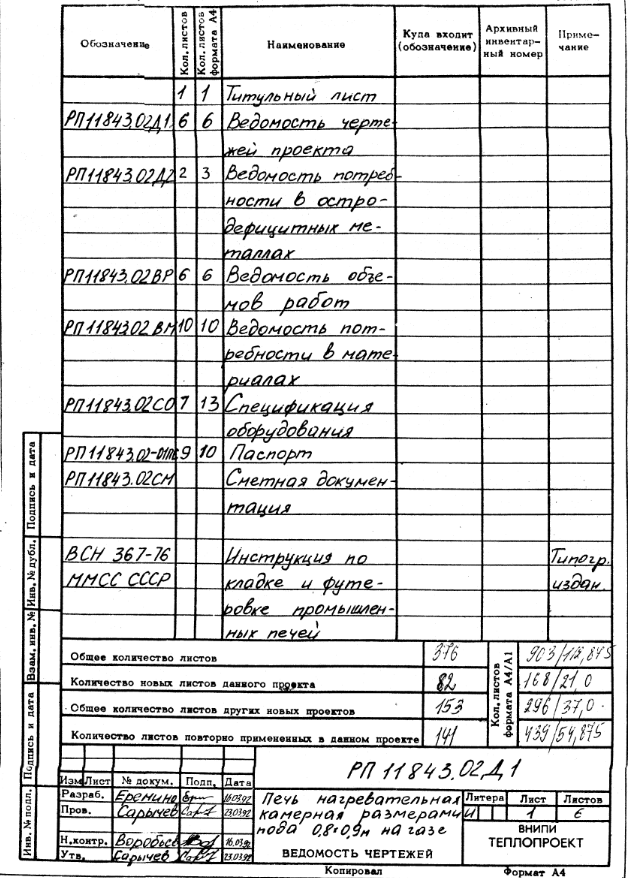 Обозначение Кол. листов Кол. листов формата А4 Наименование Куда входит (обозначение) Архивный инвентарный номер Примечание
1 1 Титульный лист
РП11843.02Д1 6 6 Ведомость черте-
жей проекта
РП11843.02Д2 2 3 Ведомость потреб-
ности в остро-
дефицитных ме-
таллах
РП11843.02ВР 6 6 Ведомость объе-
мов работ
РП11843.02ВМ 10 10 Ведомость пот-
ребности в мате-
риалах
РП11843.02СО 7 13 Спецификация
оборудования
РП11843.02-01ПС 9 10 Паспорт
РП11843.02СМ Сметная докумен-
тация
ВСН 367-76 Инструкция по Типогр.
ММСС СССР кладке и футе- издан.
ровке промышлен-
ных печей
Общее количество листов 376 903/112,875
Количество новых листов данного проекта 82 168/21,0
Общее количество листов других новых проектов 153 296/37,0
Количество листов повторно примененных в данном проекте 141 439/54,875
Кол. листов
формата А4/А1
РП 11843.02Д1
Изм Лист № докум. Подп. Дата
Разраб. Еремина 16.03.92
Пров. Сарычев 23.03.92
Н.контр. Воробьев 16.03.92
Утв. Сарычев 23.03.92
Печь нагревательная
камерная размерами
пода 0,8×0,9м на газе
ВЕДОМОСТЬ ЧЕРТЕЖЕЙ
Литера Лист Листов
И 1 6
ВНИПИ
ТЕПЛОПРОЕКТ
Копировал Формат А4
Инв. № подл. Подпись и дата Взам. инв. № Инв. № дубл. Подпись и дата